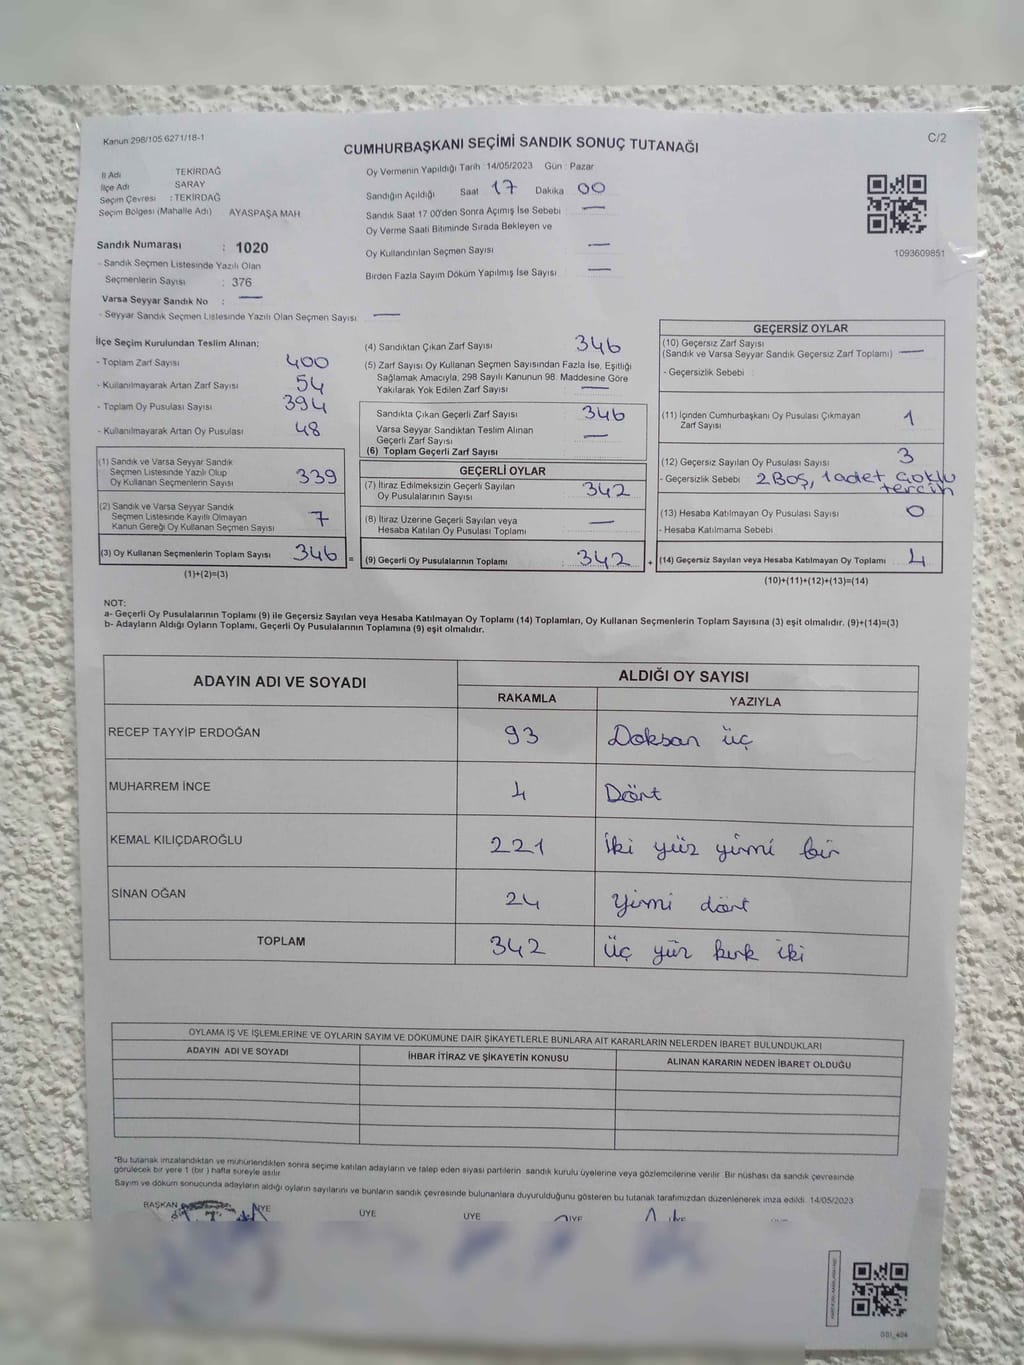 Kanun 298/105 6271/18-1
C/2
CUMHURBAŞKANI SEÇİMİ SANDIK SONUÇ TUTANAĞI
İl Adı TEKİRDAĞ
İlçe Adı SARAY
Seçim Çevresi : TEKİRDAĞ
Seçim Bölgesi (Mahalle Adı) AYASPAŞA MAH
Sandık Numarası : 1020
- Sandık Seçmen Listesinde Yazılı Olan
Seçmenlerin Sayısı : 376
Varsa Seyyar Sandık No : —
- Seyyar Sandık Seçmen Listesinde Yazılı Olan Seçmen Sayısı: —
Oy Vermenin Yapıldığı Tarih :14/05/2023 Gün : Pazar
Sandığın Açıldığı Saat 17 Dakika 00
Sandık Saat 17 00'den Sonra Açımış İse Sebebi —
Oy Verme Saati Bitiminde Sırada Bekleyen ve
Oy Kullandırılan Seçmen Sayısı —
Birden Fazla Sayım Döküm Yapılmış İse Sayısı —
1093609851
İlçe Seçim Kurulundan Teslim Alınan:
- Toplam Zarf Sayısı 400
- Kullanılmayarak Artan Zarf Sayısı 54
- Toplam Oy Pusulası Sayısı 394
- Kullanılmayarak Artan Oy Pusulası 48
(1) Sandık ve Varsa Seyyar Sandık
Seçmen Listesinde Yazılı Olup
Oy Kullanan Seçmenlerin Sayısı 339
(2) Sandık ve Varsa Seyyar Sandık
Seçmen Listesinde Kayıtlı Olmayan
Kanun Gereği Oy Kullanan Seçmen Sayısı 7
(3) Oy Kullanan Seçmenlerin Toplam Sayısı 346 =
(1)+(2)=(3)
(4) Sandıktan Çıkan Zarf Sayısı 346
(5) Zarf Sayısı Oy Kullanan Seçmen Sayısından Fazla İse, Eşitliği
Sağlamak Amacıyla, 298 Sayılı Kanunun 98. Maddesine Göre
Yakılarak Yok Edilen Zarf Sayısı —
Sandıkta Çıkan Geçerli Zarf Sayısı 346
Varsa Seyyar Sandıktan Teslim Alınan
Geçerli Zarf Sayısı —
(6) Toplam Geçerli Zarf Sayısı
GEÇERLİ OYLAR
(7) İtiraz Edilmeksizin Geçerli Sayılan
Oy Pusulalarının Sayısı 342
(8) İtiraz Üzerine Geçerli Sayılan veya
Hesaba Katılan Oy Pusulası Toplamı —
(9) Geçerli Oy Pusulalarının Toplamı : 342 +
GEÇERSİZ OYLAR
(10) Geçersiz Zarf Sayısı
(Sandık ve Varsa Seyyar Sandık Geçersiz Zarf Toplamı) —
- Geçersizlik Sebebi :
(11) İçinden Cumhurbaşkanı Oy Pusulası Çıkmayan
Zarf Sayısı 1
(12) Geçersiz Sayılan Oy Pusulası Sayısı 3
- Geçersizlik Sebebi 2 Boş, 1 adet çoklu
tercih
(13) Hesaba Katılmayan Oy Pusulası Sayısı 0
- Hesaba Katılmama Sebebi
(14) Geçersiz Sayılan veya Hesaba Katılmayan Oy Toplamı 4
(10)+(11)+(12)+(13)=(14)
NOT:
a- Geçerli Oy Pusulalarının Toplamı (9) ile Geçersiz Sayılan veya Hesaba Katılmayan Oy Toplamı (14) Toplamları, Oy Kullanan Seçmenlerin Toplam Sayısına (3) eşit olmalıdır. (9)+(14)=(3)
b- Adayların Aldığı Oyların Toplamı, Geçerli Oy Pusulalarının Toplamına (9) eşit olmalıdır.
ADAYIN ADI VE SOYADI
ALDIĞI OY SAYISI
RAKAMLA YAZIYLA
RECEP TAYYİP ERDOĞAN 93 Doksan üç
MUHARREM İNCE 4 Dört
KEMAL KILIÇDAROĞLU 221 İki yüz yirmi bir
SİNAN OĞAN 24 Yirmi dört
TOPLAM 342 üç yüz kırk iki
OYLAMA İŞ VE İŞLEMLERİNE VE OYLARIN SAYIM VE DÖKÜMÜNE DAİR ŞİKAYETLERLE BUNLARA AİT KARARLARIN NELERDEN İBARET BULUNDUKLARI
ADAYIN ADI VE SOYADI İHBAR İTİRAZ VE ŞİKAYETİN KONUSU ALINAN KARARIN NEDEN İBARET OLDUĞU
*Bu tutanak imzalandıktan ve mühürlendikten sonra seçime katılan adayların ve talep eden siyasi partilerin sandık kurulu üyelerine veya gözlemcilerine verilir. Bir nüshası da sandık çevresinde
görülecek bir yere 1 (bir ) hafta süreyle asılır
Sayım ve döküm sonucunda adayların aldığı oyların sayılarını ve bunların sandık çevresinde bulunanlara duyurulduğunu gösteren bu tutanak tarafımızdan düzenlenerek imza edildi. 14/05/2023
BAŞKAN ÜYE ÜYE ÜYE ÜYE